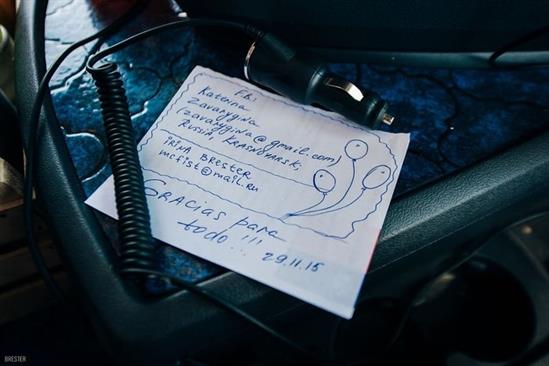 FB:
Katerina
Zavarygina
(zavarygina@gmail.com)
RUSSIA, KRASNOYARSK,
IRINA BRESTER
mcfist@mail.ru
GRACIAS para
todo... !!!
29.11.15
BRESTER